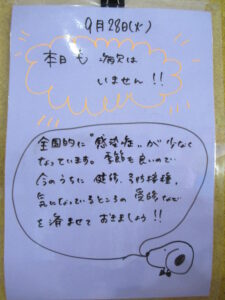 9月28日(火)
本日も 病欠は
いません!!
全国的に"感染症"が少なく
なっています。季節も良いので
今のうちに 健診、予防接種、
気になっているところの 受診など
を済ませて おきましょう!!